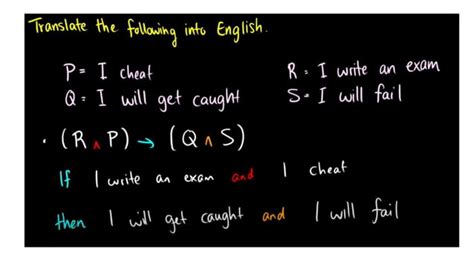 Translate the following into English.
P = I cheat
R = I write an exam
Q = I will get caught
S = I will fail
· (R ∧ P) → (Q ∧ S)
If I write an exam and I cheat
then I will get caught and I will fail